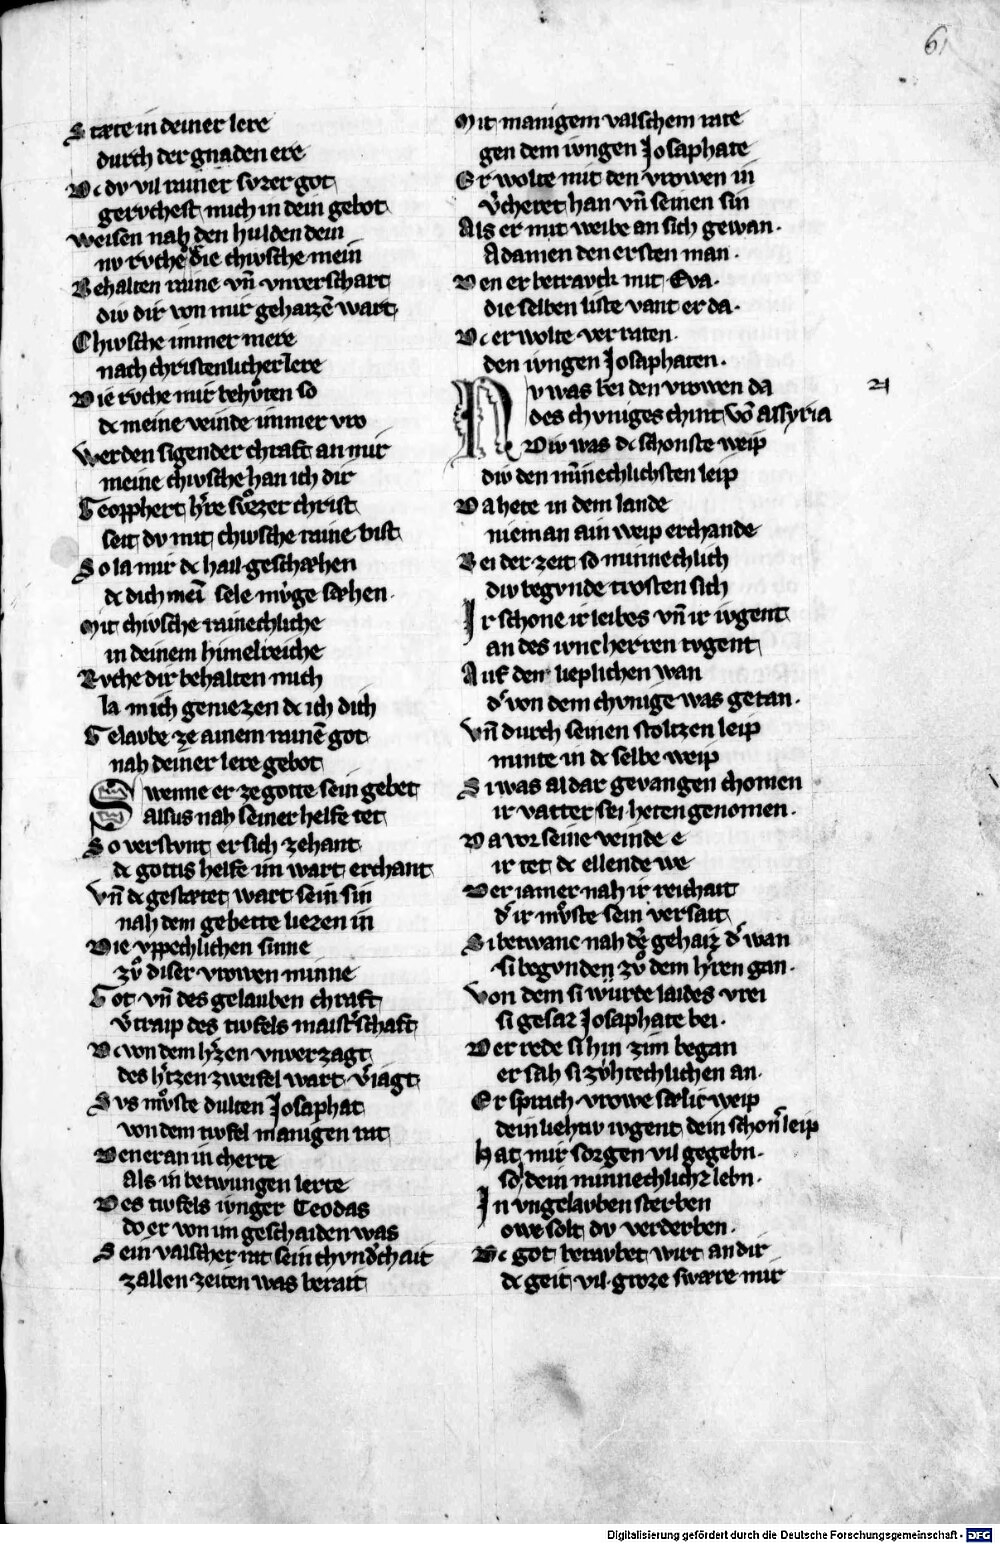 61
Stæte in deiner lere
durch der gnaden ere
Dc dv vil rainer svzer got
gervchest mich in dein gebot
weisen nah den hulden dein
nv rvche die chwsche mein
Behalten raine vn̄ vnverschart
diw dir von mir gehaizē wart
Chwsche immer mere
nach christenlicher lere
Die rvche mir behvͦten so
dc meine veinde immer vro
werden sigender chraft an mir
meine chwsche han ich dir
Geopphert hr̄e svͦzzer christ
seit dv mit chwsche raine bist
So la mir dc hail geschæhen
dc dich mei᷑ sele mvͤge sæhen
Mit chwsche rainechliche
in deinem himelreiche
Rvche dir behalten mich
la mich geniezen dc ich dich
Gelavbe ze ainem rainē got
nah deiner lere gebot
Swenne er ze gotte sein gebet
alsus nah seiner helfe tet
So verstvnt er sich zehant
dc gottis helfe im wart erchant
Vn̄ dc gestætet wart sein sin
nah dem gebette liezen in
Die vppechlichen sinne
zvͦ diser vrowen minne
Got vn̄ des gelauben chraft
v᷑traip des tivfels maist᷑schaft
Dc von dem h᷑zen vnverzagt
des h᷑tzen zweifel wart v᷑iagt
Svs mvͦste dulten Josaphat
von dem tivfel manigen rat
Den er an in cherte
Als in betwungen lerte
Des tivfels ivnger Teodas
do er von im geschaiden was
Sein valscher rat sein chvnd᷑chait
zallen zeiten was berait
Mit manigem valschem rate
gen dem ivngen Josaphate
Er wolte mit den vrowen in
v᷑cheret han vn̄ seinen sin
Als er mit weibe an sich gewan.
Adamen den ersten man.
Den er betravck mit Eva.
die selben liste vant er da.
Dc er wolte verraten.
den ivngen Josaphaten.
Nv was bei den vrowen da
des chvniges chint vō Assyria
Diw was dc schonste weip
diw den mīnechlichsten leip
Da hete in dem lande
nieman ain weip erchande
Bei der zeit so minnechlich
diw begvnde trosten sich
Ir schone ir leibes vn̄ ir ivgent
an des ivncherren tvgent
Auf den lieplichen wan
d᷑ von dem chvnige was getan.
Vn̄ durch seinen stoltzen leip
minte in dc selbe weip
Si was aldar gevangen chomen
ir vatter sei heten genomen.
Da vor seine veinde e
ir tet dc ellende we
Der iamer nah ir reichait
d᷑ ir mvͦste sein versait
Si betwanc nah d᷑ gehaiz d᷑ wan
si begvnden zvͦ dem h᷑ren gan.
Von dem si wurde laides vrei
si gesaz Josaphate bei.
Der rede si hin zim began
er sah si zv᷑htechlichen an.
Er sprach vrowe sælic weip
dein liehtiv ivgent dein schon᷑ leip
Hat mir sorgen vil gegebn.
sol dein minnechlichz lebn.
In vngelavben sterben
owe solt dv verderben.
Dc got beravbet wirt an dir
dc geit vil groze swære mir
Digitalisierung gefördert durch die Deutsche Forschungsgemeinschaft - DFG